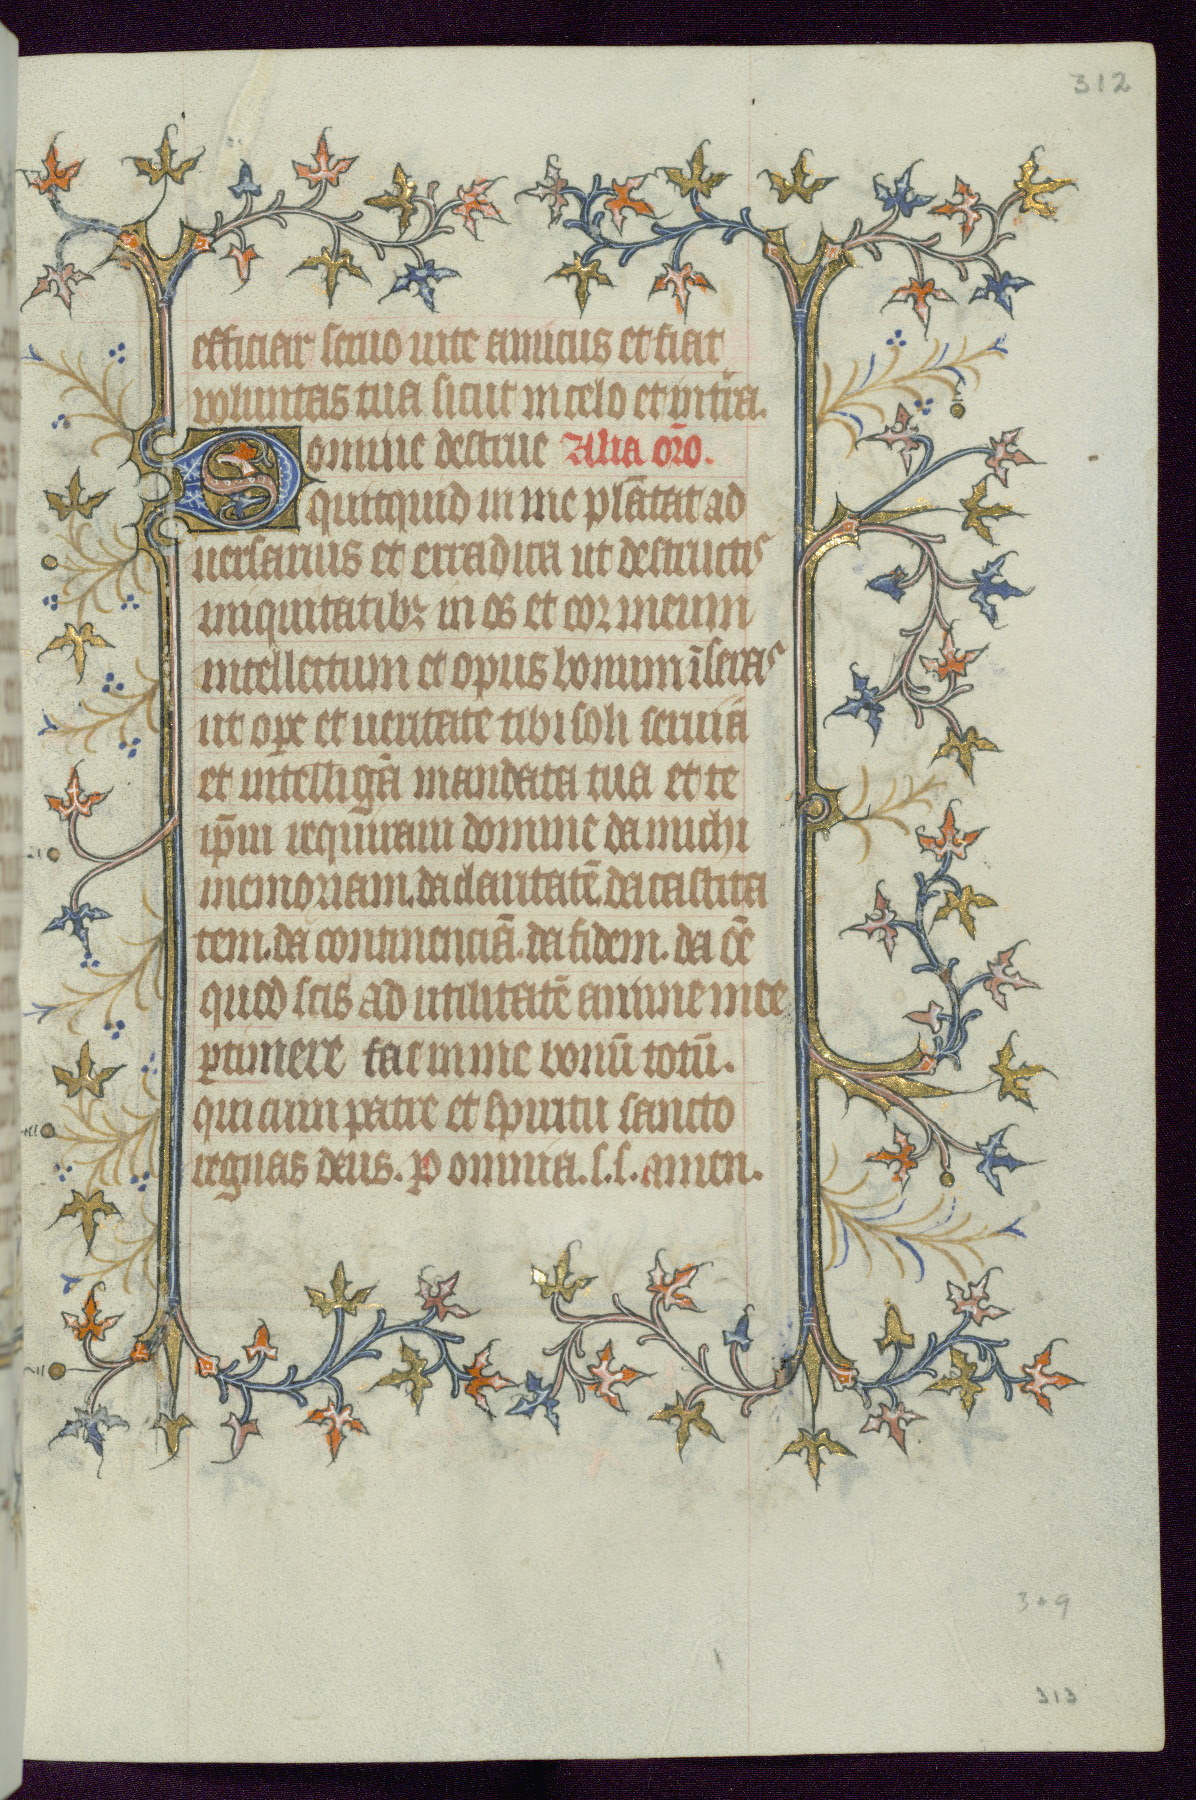 312
efficiar seruo uite amicus et fiat
uoluntas tua sicut in celo et in t̄ra.
Domine destrue Alia or̄o.
quicquid in me plātat ad
uersarius et erradica ut destructis
iniquitatibꝫ in os et cor meum
intellectum et opus bonum īseras
ut oꝑe et ueritate tibi soli seruiā
et intelligā mandata tua et te
ip̄m requiram domine da michi
memoriam. da claritatē. da castita
tem. da continenciā. da fidem. da om̄e
quod scis ad utilitatē anime mee
ꝑtinere fac in me bonū totū.
qui cum patre et spiritu sancto
regnas deus. P omnia. s. s. amen.
309
313